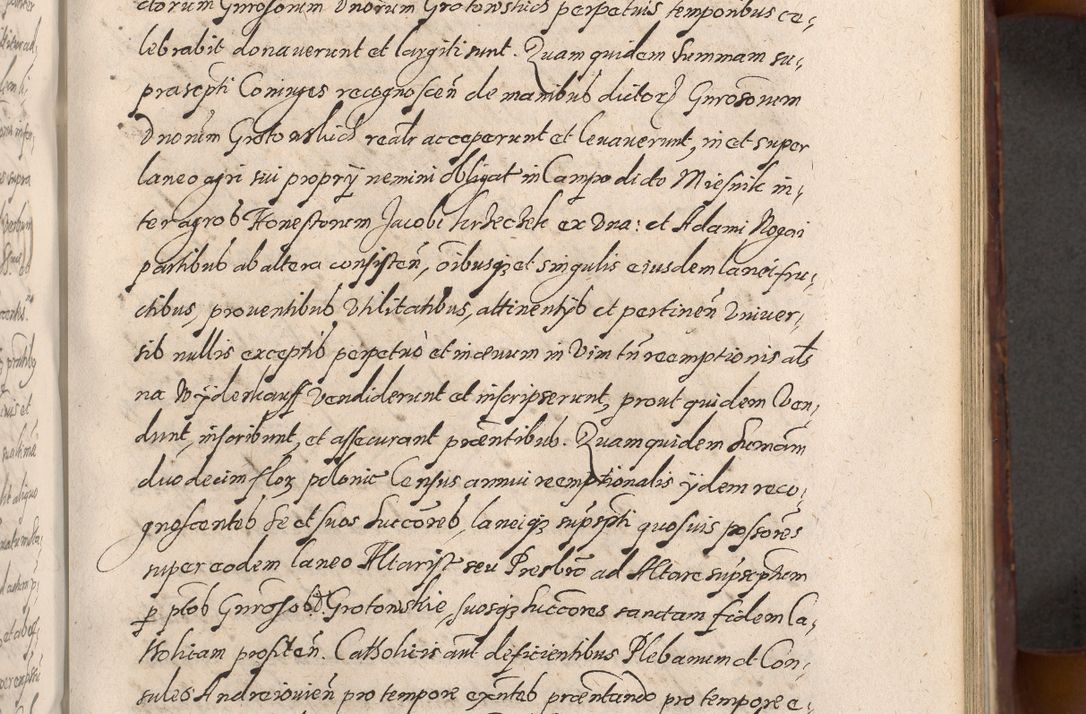 ctorum Gnrosorum Dnorum Grotowskich perpetuis temporibus ce,
lebrabit donauerunt et largiti sunt. Quam quidem summam su,
prascpti Coniuges recognoscen de manibus dictor Gnrosorum
Dnorum Grotowskich realr acceperunt et leuauerunt, in et super
laneo agri sui proprÿ nemini obligat in Campo dicto Miesnik in,
ter agros Honestorum Jacobi Krzeczek ex vna: et Adami Rogoi
partibus ab altera consisten, oibusq et singulis eiusdem lanei fru,
ctibus, prouentibus vtilitatibus, attinentÿs et pertinen vniuer,
sis nullis exceptis perpetuò et in æuum in vim tn reemptionis als
na Wÿderkauff vendiderunt et inscripserunt, prout quidem Ven,
dunt, inscribunt, et assecurant præntibus. Quam quidem sumam
duodecim flor polonic Census annui reemptionalis ÿdem reco,
gnoscentes se et suos succores, laneiq supscpti quosuis possores
super eodem laneo Altarist seu Presbro ad Altare supscptum
p ptos Gnrosos D Grotowskie, suosq succores sanctam fidem Ca,
tholicam profiten. Catholicis aut deficientibus Plebanum et Con,
sules Andreiouien pro tempore exntes præntando pro tempore e,